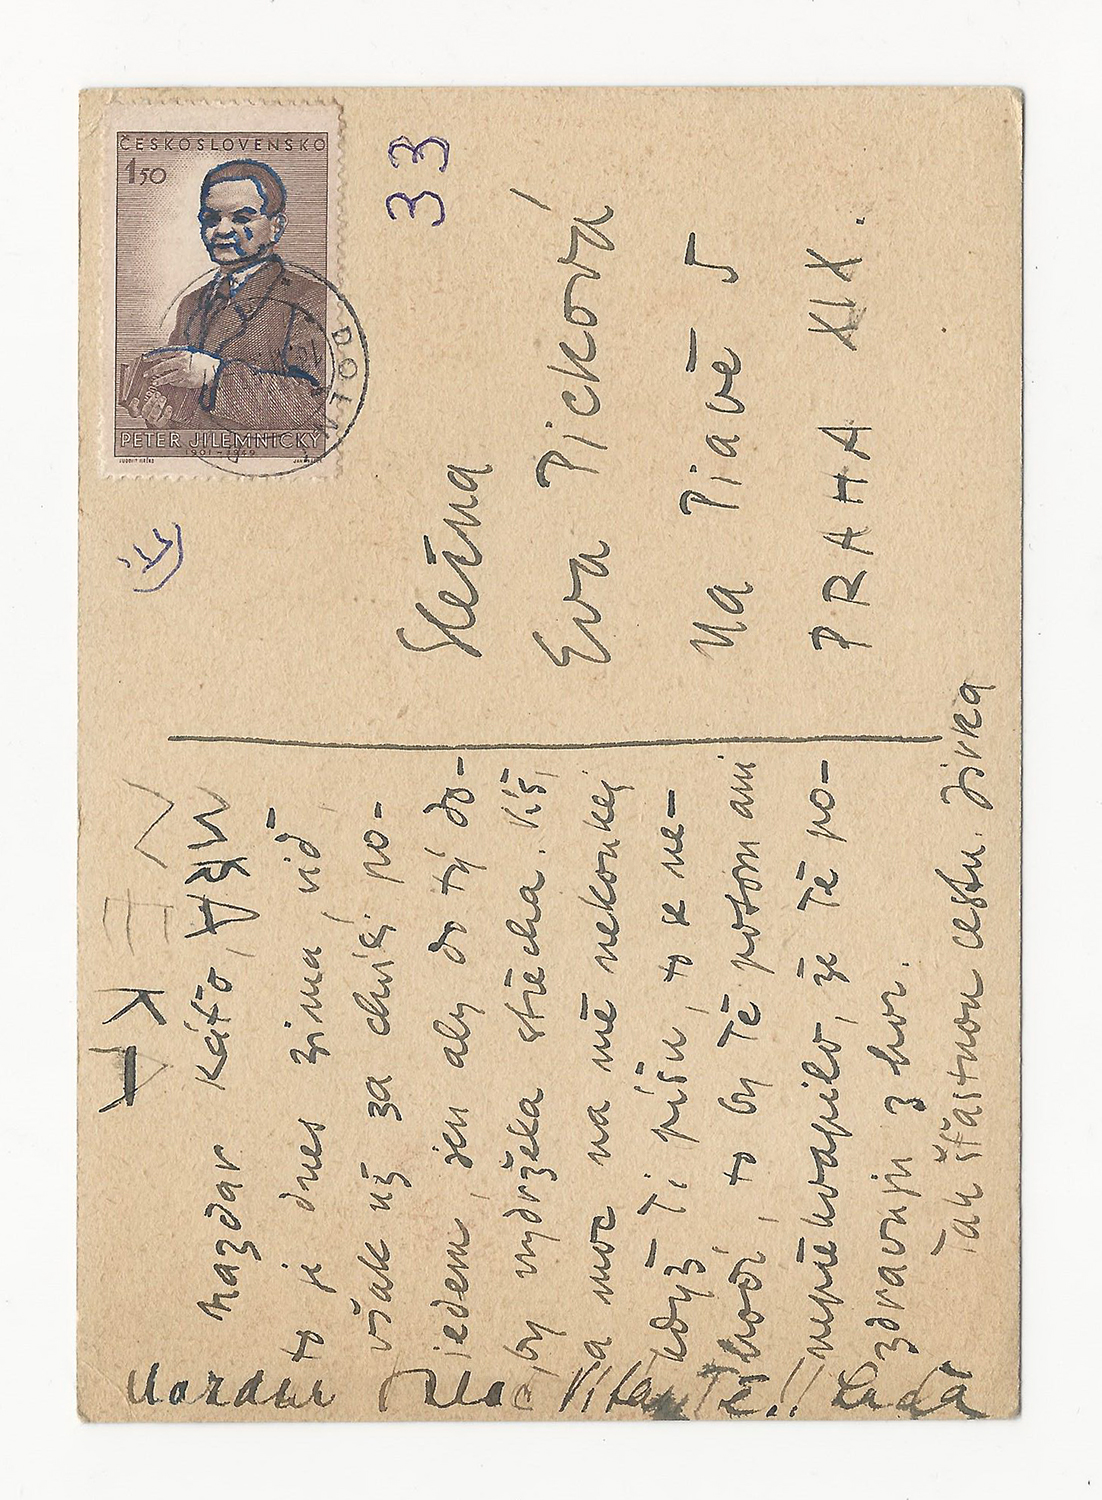 ČESKOSLOVENSKO
1,50
PETER JILEMNICKÝ
1901-1949
DOLN
33
Slečna
Eva Picková
Na Piavě 5
PRAHA XIX.
Nazdar Káťo,
to je dnes zima, viď
však už za chvíli po-
jedem, jen aby do tý do-
by vydržela střecha. Víš,
a moc na mě nekoukej
když Ti píšu, to se ne-
hodí, to by Tě potom ani
nepřekvapilo, že Tě po-
zdravuji z hor.
Tak šťastnou cestu. Jirka
Nazdar Vítám Tě!! Láďa